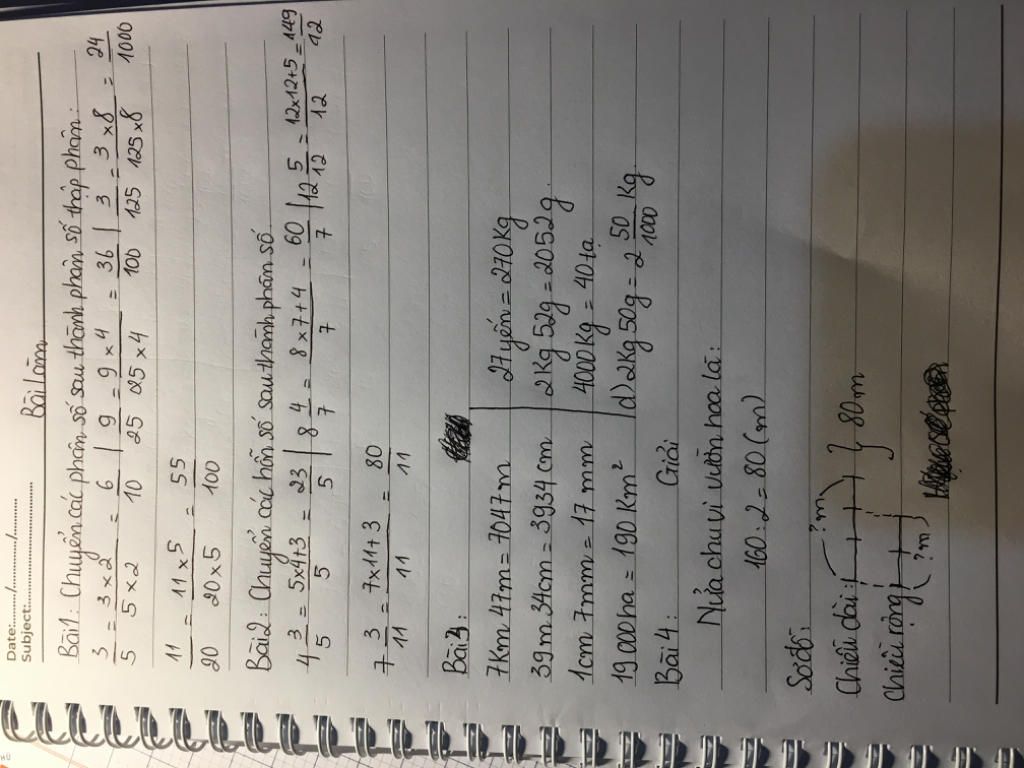 Date:....../....../......
Subject:..........................
Bài làm
Bài 1: Chuyển các phân số sau thành phân số thập phân:
3/5 = 3 x 2 / 5 x 2 = 6/10 | 9/25 = 9 x 4 / 25 x 4 = 36/100 | 3/125 = 3 x 8 / 125 x 8 = 24/1000
11/20 = 11 x 5 / 20 x 5 = 55/100
Bài 2: Chuyển các hỗn số sau thành phân số
4 3/5 = 5x4+3 / 5 = 23/5 | 8 4/7 = 8 x 7 + 4 / 7 = 60/7 | 12 5/12 = 12x12+5 / 12 = 149/12
7 3/11 = 7x11+3 / 11 = 80/11
Bài 3:
7Km 47m = 7047m | 27 yến = 270Kg
39m 34cm = 3934cm | 2Kg 52g = 2052g.
1cm 7mm = 17 mm | 4000Kg = 40 tạ
19 000ha = 190 Km² | d) 2Kg 50g = 2 50/1000 Kg.
Bài 4: Giải
Nửa chu vi vườn hoa là:
160 : 2 = 80 (m)
Sơ đồ:
?m
Chiều dài:
} 80m
Chiều rộng
?m